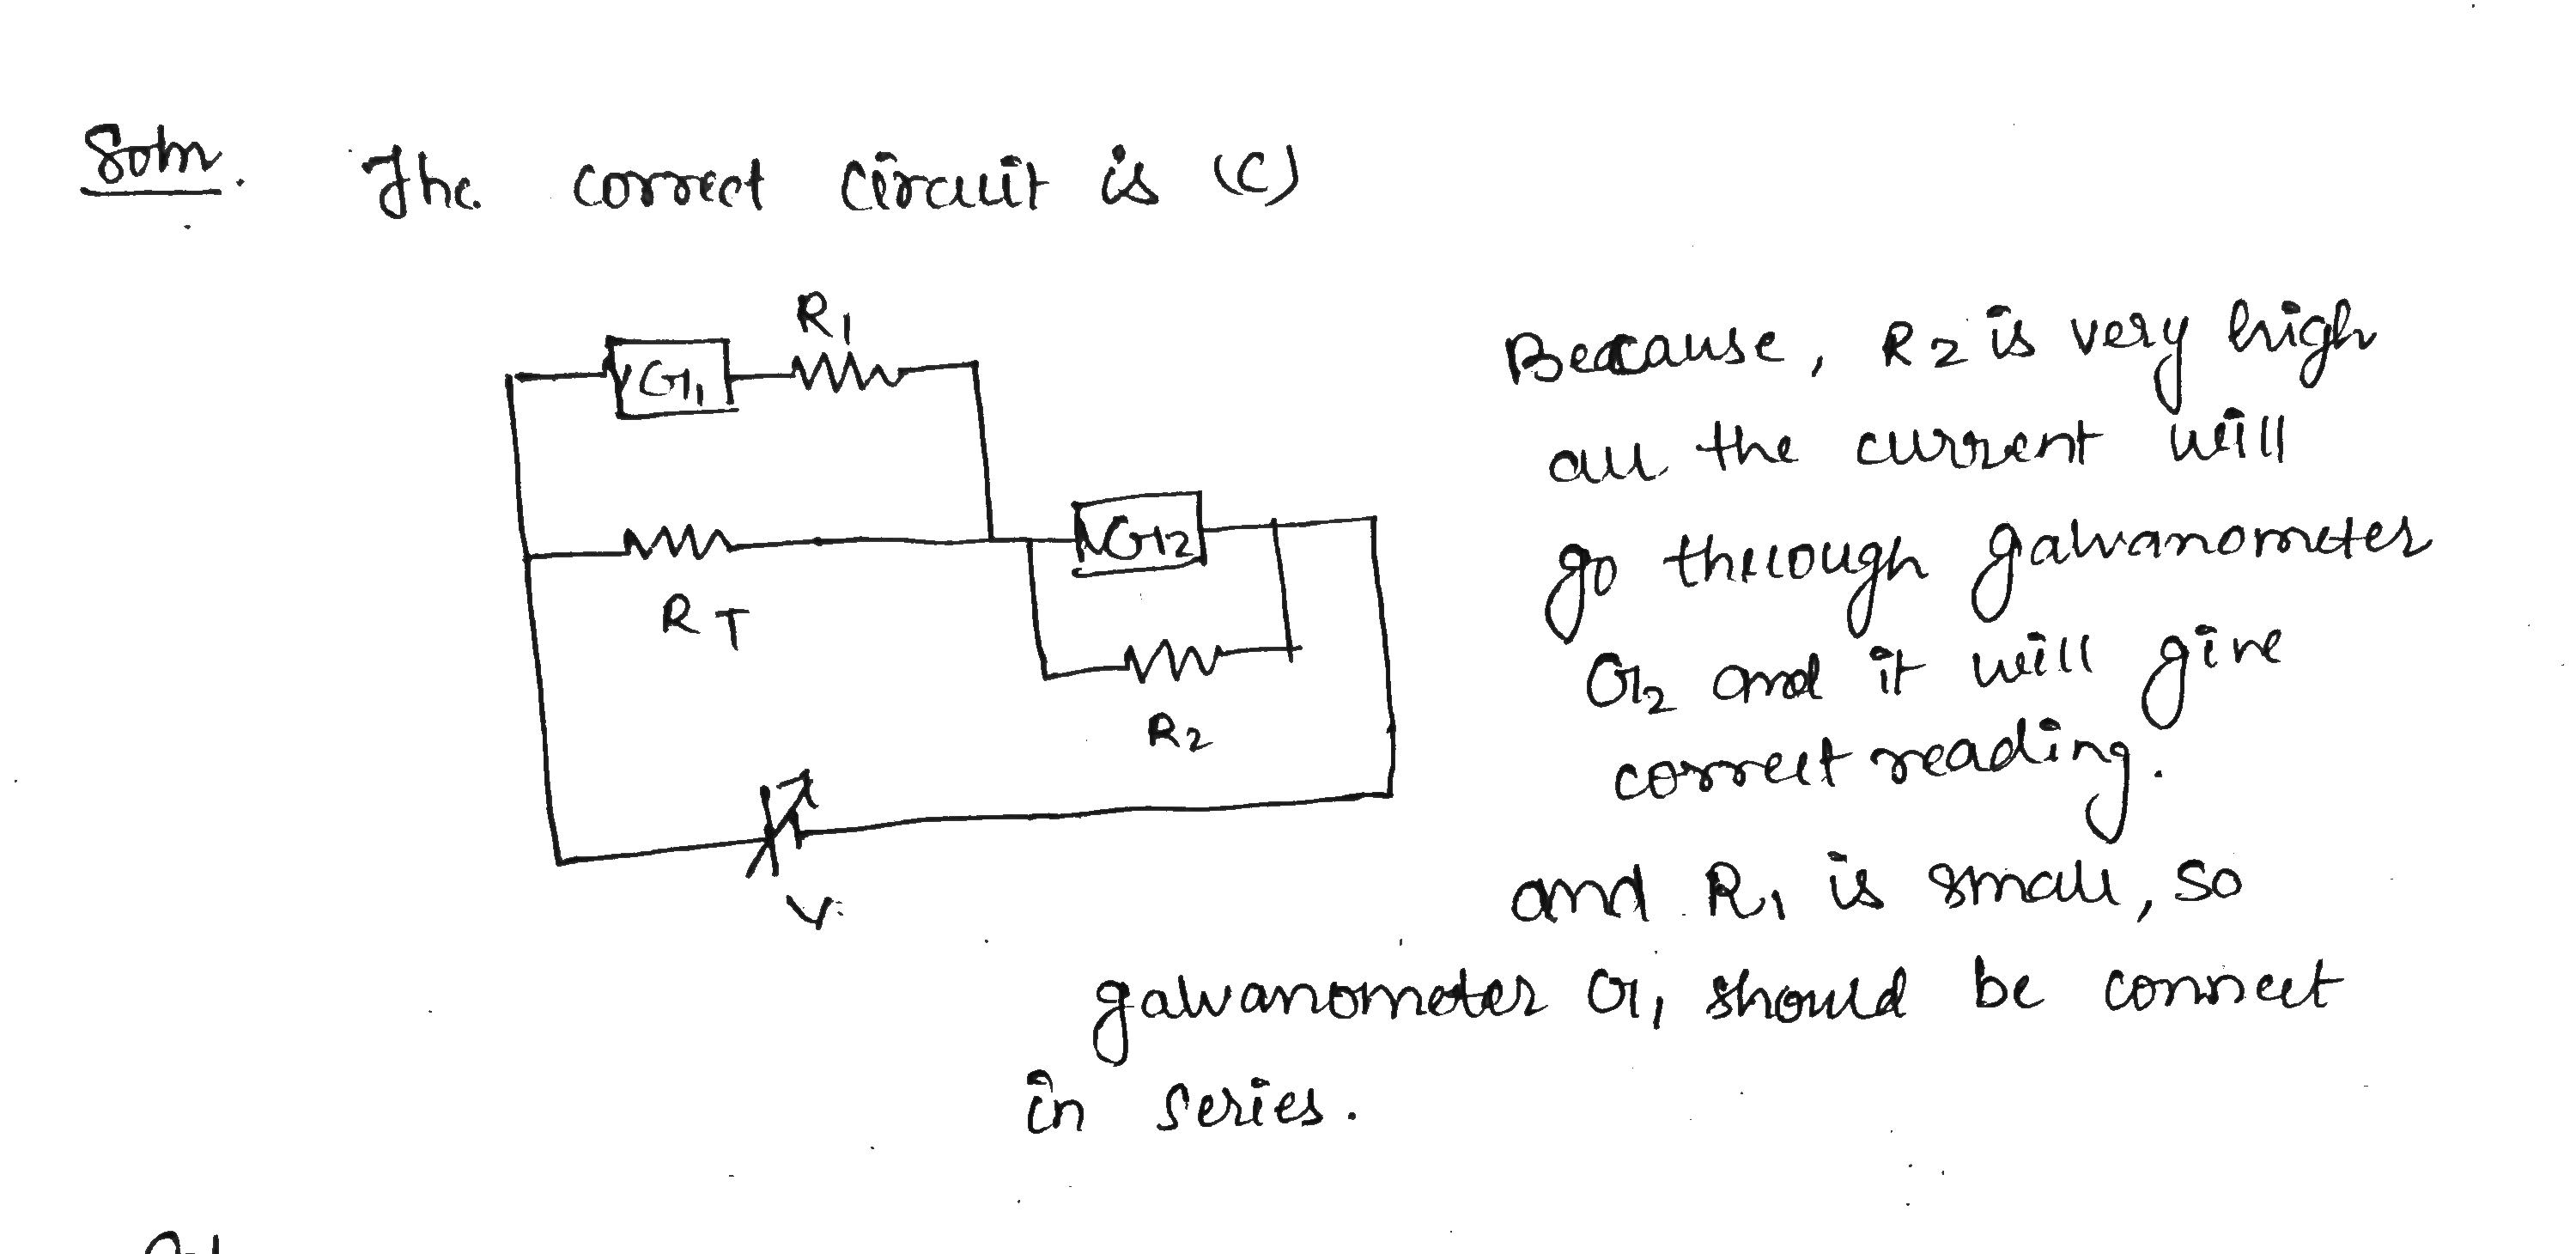 Soln. The correct circuit is (C)
R1
G1
Because, R2 is very high
all the current will
G2
go through galvanometer
RT
G2 and it will give
R2
correct reading.
V
and R1 is small, so
galvanometer G1 should be connect
in series.